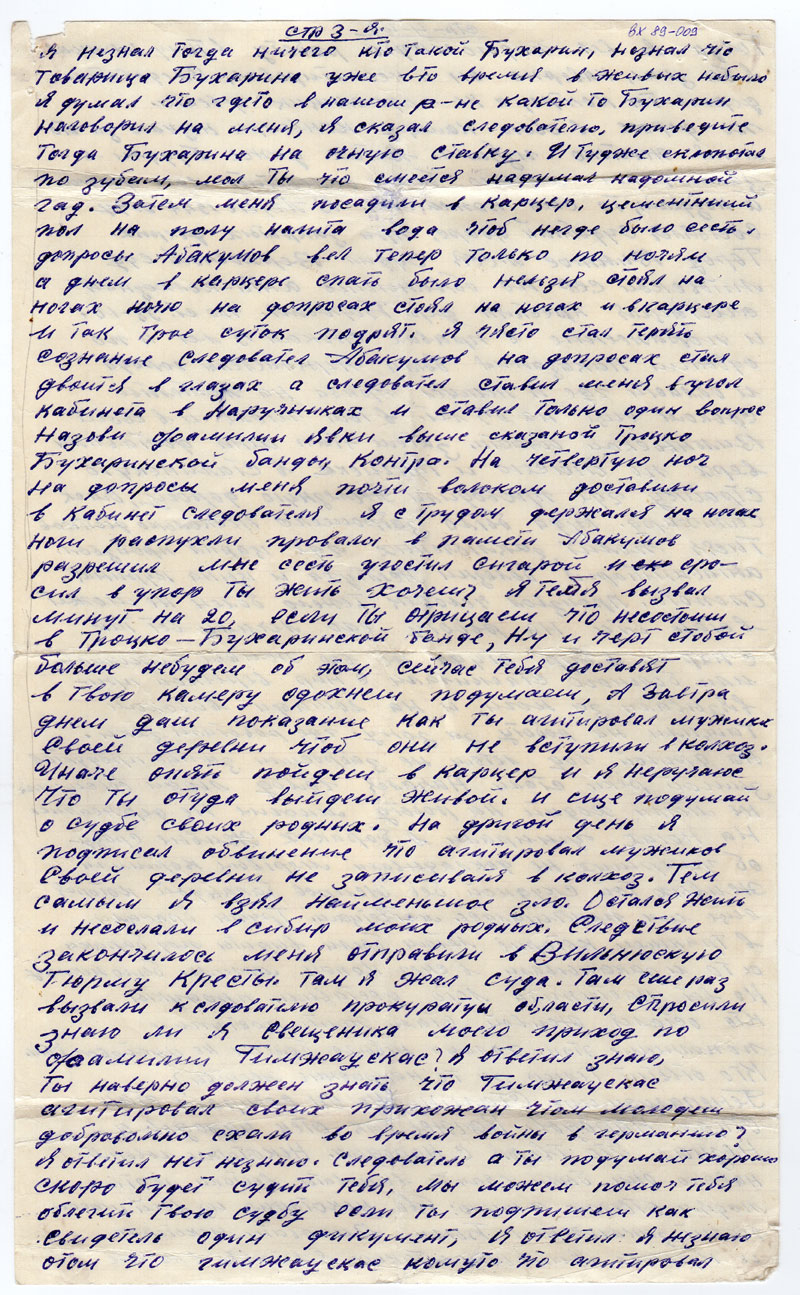 стр 3-я.
ВХ 89-009
Я незнал тогда ничего кто такой Бухарин, незнал что
товарища Бухарина уже вто время в живых небыло
Я думал что гдето в нашом р-не какой то Бухарин
наговорил на меня, я сказал следователю, приведите
тогда Бухарина на очную ставку. И тудже схлопотал
по зубам, мол ты что смеятся надумал надомной
гад. Затем меня посадили в карцер, цементный
пол на полу налита вода чтоб негде было сесть.
допросы Абакумов вел тепер только по ночям
а днем в карцере спать было нельзя стоял на
ногах ночю на допросах стоял на ногах и вкарцере
и так трое суток подрят. я чясто стал терять
сознание следовател Абакумов на допросах стал
двоится в глазах а следовател ставил меня вугол
кабинета в наручниках и ставил только один вопрос
назови фамилии явки выше сказаной Троцко
Бухаринской банды, контра. На четвертую ноч
на допросы меня почти волоком доставили
в кабинет следователя я с трудом держался на ногах
ноги распухли провалы в памети Абакумов
разрешил мне сесть угостил сигарой и спро-
сил в упор ты жить хочеш? я тебя вызвал
минут на 20, если ты отрицаеш что несостоиш
в Троцко-Бухаринской банде, ну и черт стобой
больше небудем об этом, сейчас тебя доставят
в твою камеру одохнеш подумаеш, А завтра
днем даш показание как ты агитировал мужики
своей деревни чтоб они не вступили в колхоз.
Иначе опять пойдеш в карцер и я неручаюс
что ты отуда выйдеш живой. и еще подумай
о судбе своих родных. На другой день я
подписал обвинение что агитировал мужиков
своей деревни не записыватя в колхоз. Тем
самым я взял найменьшое зло. Остался жить
и несослали в сибир моих родных. Следствие
закончилось меня отправили в Вильнюскую
тюрму Кресты. там я ждал суда. Там еше раз
вызвали к следователю прокуратуы области, спросили
знаю ли я свещеника моего приход по
фаамилии Гимжаускас? я ответил знаю,
ты наверно должен знать что Гимжаускас
агитировал своих прихожан чтом молодеш
добровольно ехала во время войны в германию?
Я ответил нет незнаю. Следователь а ты подумай хорошо
скоро будет судить тебя, мы можем помоч тебя
облегчит твою судбу если ты подпишеш как
свидетель один дикумент, я ответил я незнаю
отом что гимжаускас комуто что агитировал